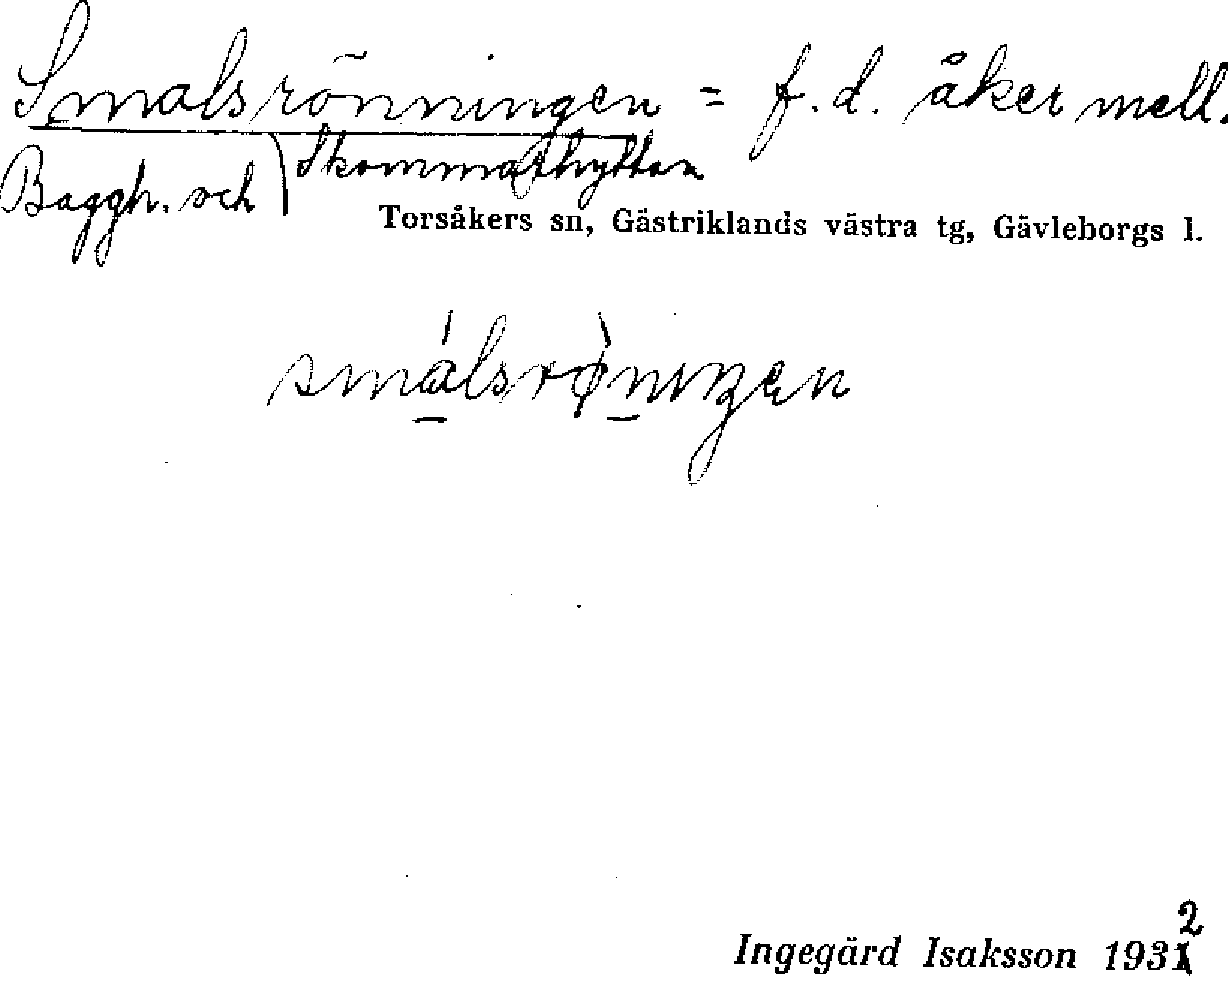 Smalsrönningen = f.d. åker mell.
Baggh. och Skommarhyttan
Torsåkers sn, Gästriklands västra tg, Gävleborgs l.
smálsrø̀nıŋen
Ingegärd Isaksson 1932